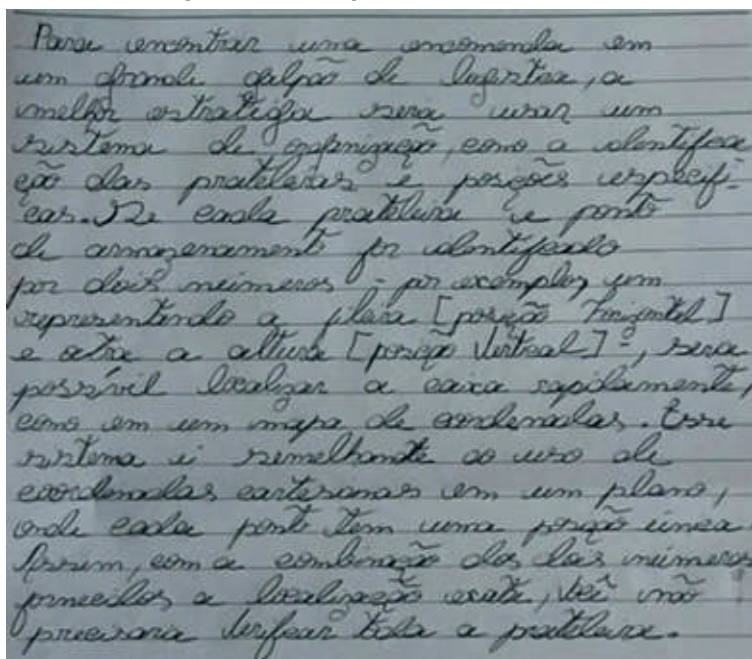 Para encontrar uma encomenda em
um grande galpão de logistica, a
melhor estratégia sera usar um
sistema de organização, como a identifica
ção das prateleiras e posições especifi-
cas. Se cada prateleira e ponto
de armazenamento for identificado
por dois números - por exemplo, um
representando a fileira [posição horizontal]
e outra a altura [posição vertical] -, sera
possível localizar a caixa rapidamente,
como em um mapa de coordenadas. Esse
sistema é semelhante ao uso de
coordenadas cartesianas em um plano,
onde cada ponto tem uma posição única.
Assim, com a combinação dos dois números
fornecidos a localização exata, você não
precisaria verificar toda a prateleira.